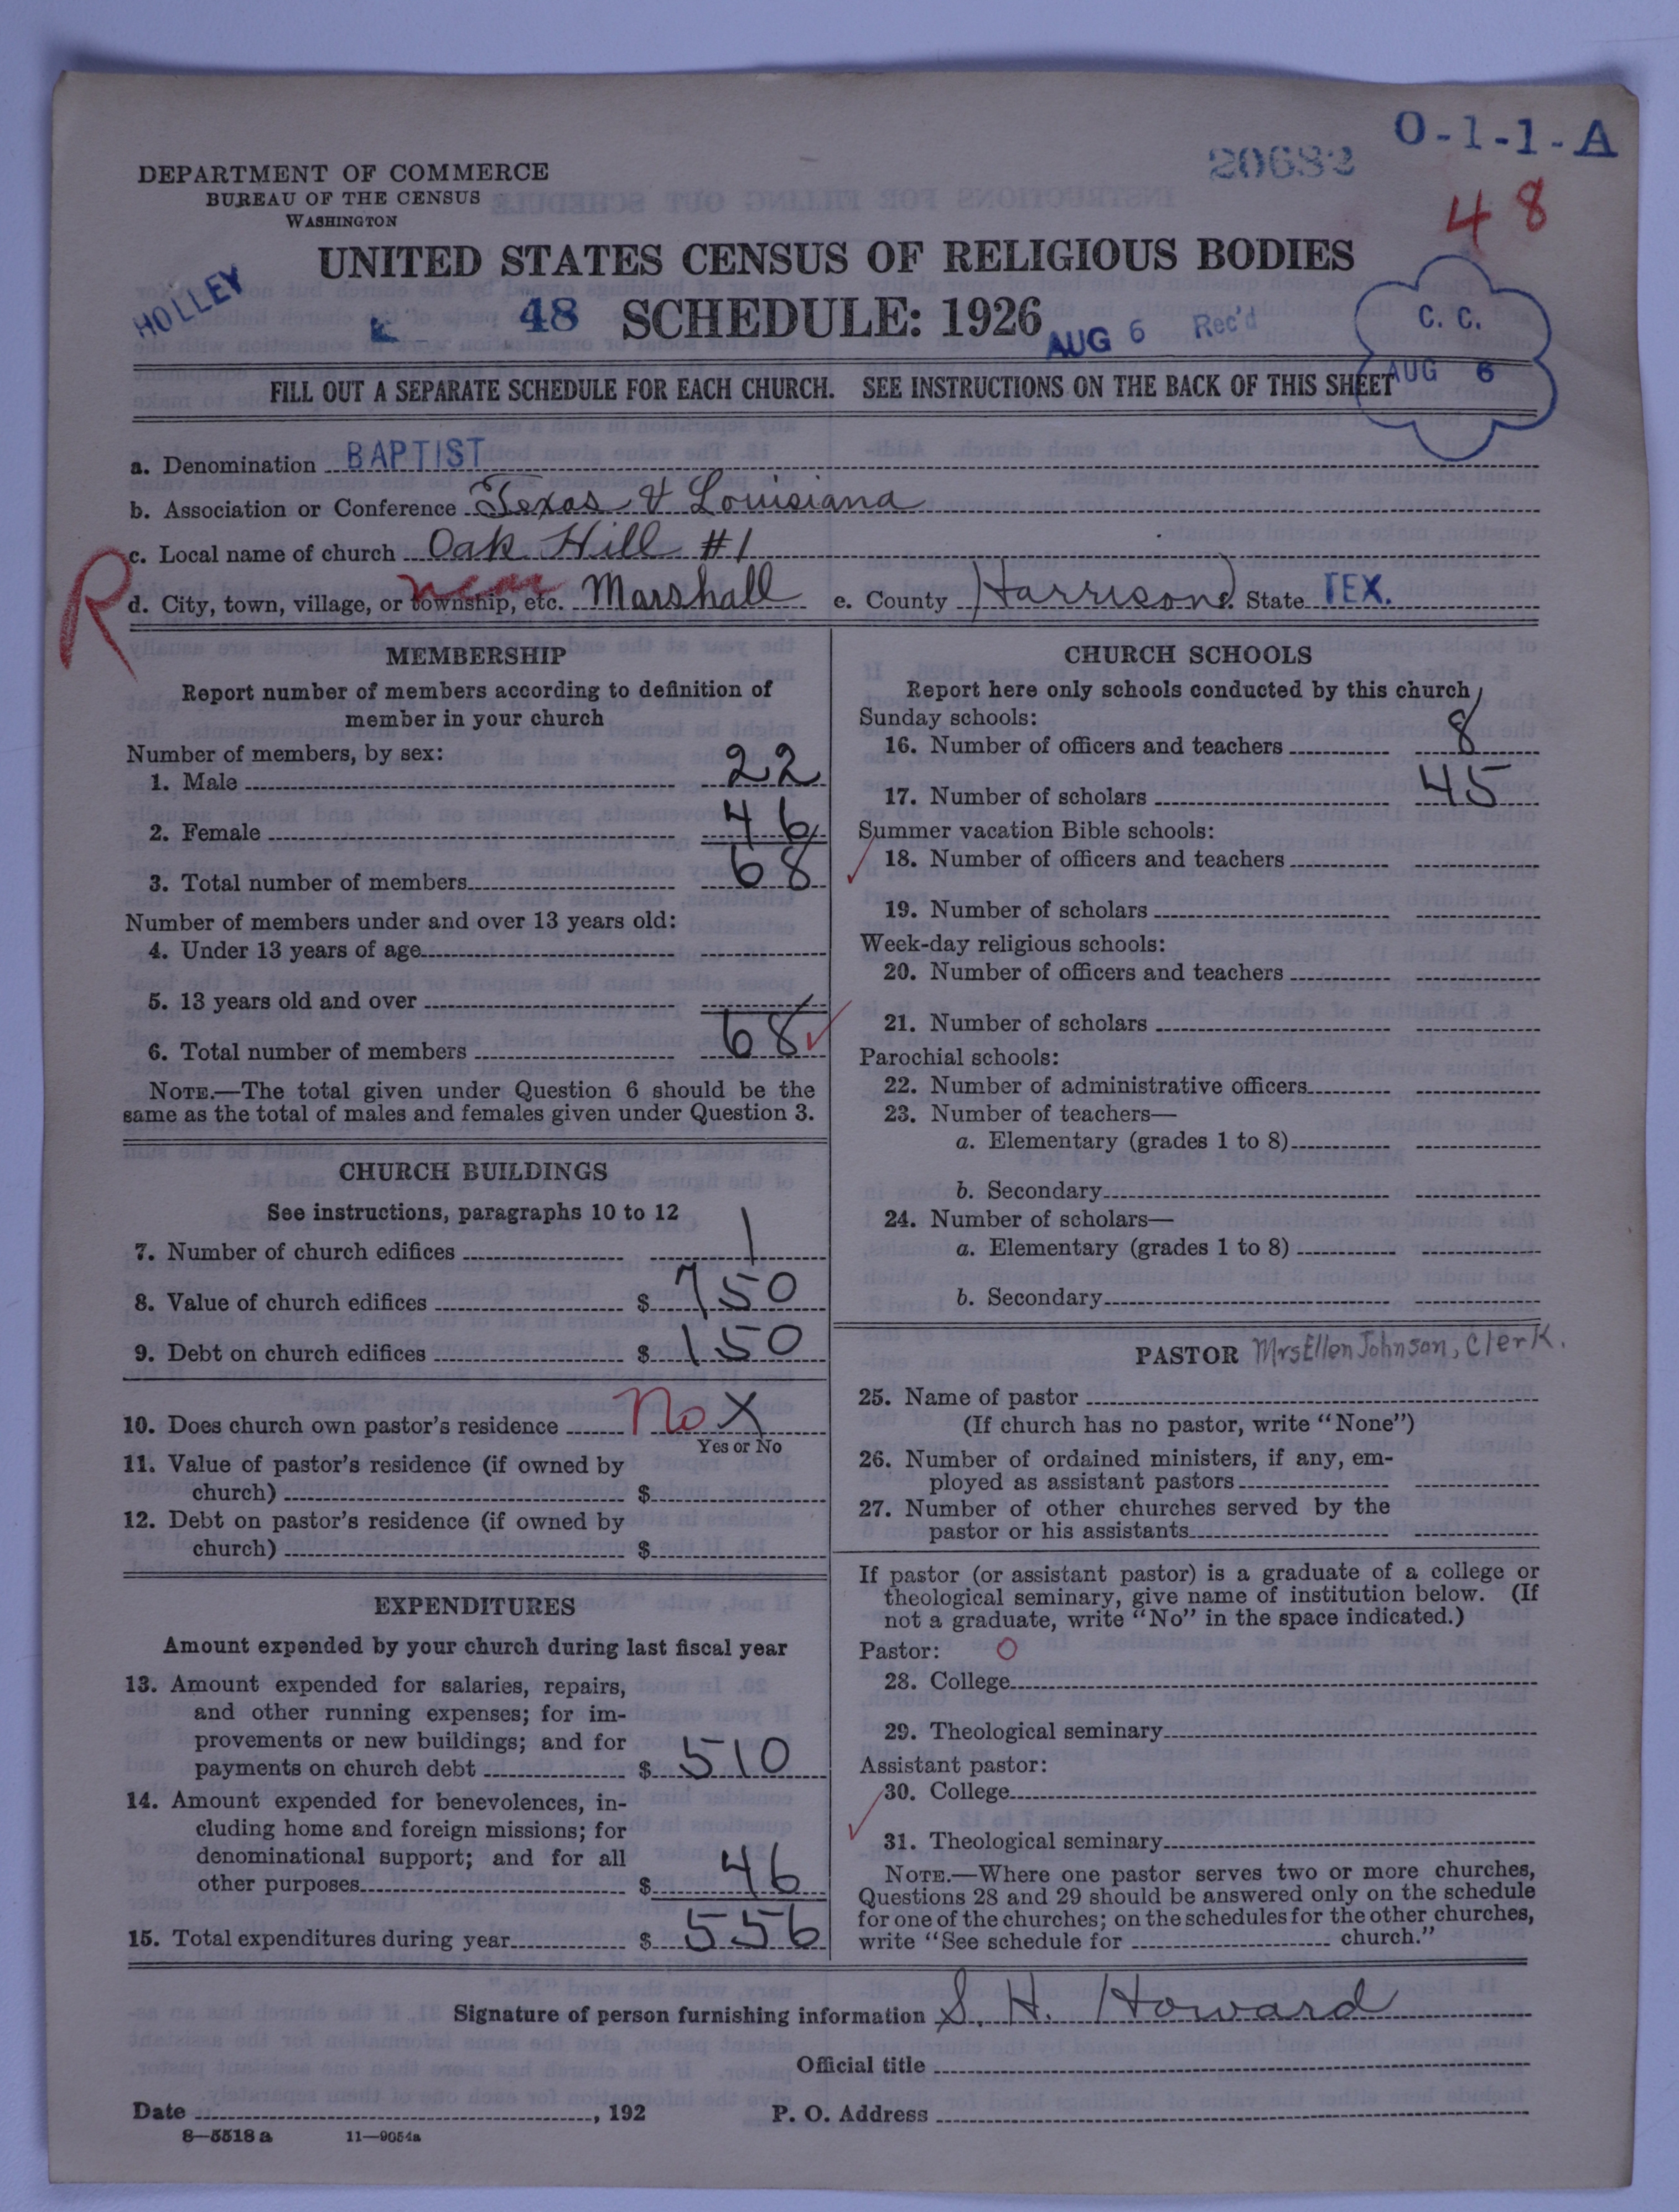 O-1-1-A
20682
48
DEPARTMENT OF COMMERCE
BUREAU OF THE CENSUS
WASHINGTON
UNITED STATES CENSUS OF RELIGIOUS BODIES
HOLLEY
48 SCHEDULE: 1926
AUG 6 Rec'd
C. C.
AUG 6
FILL OUT A SEPARATE SCHEDULE FOR EACH CHURCH. SEE INSTRUCTIONS ON THE BACK OF THIS SHEET
a. Denomination BAPTIST
b. Association or Conference Texas & Louisiana
c. Local name of church Oak Hill #1
R
d. City, town, village, or township, etc. near Marshall e. County Harrison f. State TEX.
MEMBERSHIP
Report number of members according to definition of
member in your church
Number of members, by sex:
1. Male 22
2. Female 46
3. Total number of members 68
Number of members under and over 13 years old:
4. Under 13 years of age
5. 13 years old and over
6. Total number of members 68
NOTE.—The total given under Question 6 should be the
same as the total of males and females given under Question 3.
CHURCH BUILDINGS
See instructions, paragraphs 10 to 12
7. Number of church edifices 1
8. Value of church edifices $ 750
9. Debt on church edifices $ 150
10. Does church own pastor's residence No X
Yes or No
11. Value of pastor's residence (if owned by
church) $
12. Debt on pastor's residence (if owned by
church) $
EXPENDITURES
Amount expended by your church during last fiscal year
13. Amount expended for salaries, repairs,
and other running expenses; for im-
provements or new buildings; and for
payments on church debt $ 510
14. Amount expended for benevolences, in-
cluding home and foreign missions; for
denominational support; and for all
other purposes $ 46
15. Total expenditures during year $ 556
CHURCH SCHOOLS
Report here only schools conducted by this church
Sunday schools:
16. Number of officers and teachers 8
17. Number of scholars 45
Summer vacation Bible schools:
18. Number of officers and teachers
19. Number of scholars
Week-day religious schools:
20. Number of officers and teachers
21. Number of scholars
Parochial schools:
22. Number of administrative officers
23. Number of teachers—
a. Elementary (grades 1 to 8)
b. Secondary
24. Number of scholars—
a. Elementary (grades 1 to 8)
b. Secondary
PASTOR Mrs Ellen Johnson, Clerk.
25. Name of pastor
(If church has no pastor, write "None")
26. Number of ordained ministers, if any, em-
ployed as assistant pastors
27. Number of other churches served by the
pastor or his assistants
If pastor (or assistant pastor) is a graduate of a college or
theological seminary, give name of institution below. (If
not a graduate, write "No" in the space indicated.)
Pastor: O
28. College
29. Theological seminary
Assistant pastor:
30. College
31. Theological seminary
NOTE.—Where one pastor serves two or more churches,
Questions 28 and 29 should be answered only on the schedule
for one of the churches; on the schedules for the other churches,
write "See schedule for church."
Signature of person furnishing information S. H. Howard
Official title
Date , 192 P. O. Address
8—5518 a 11—9054a